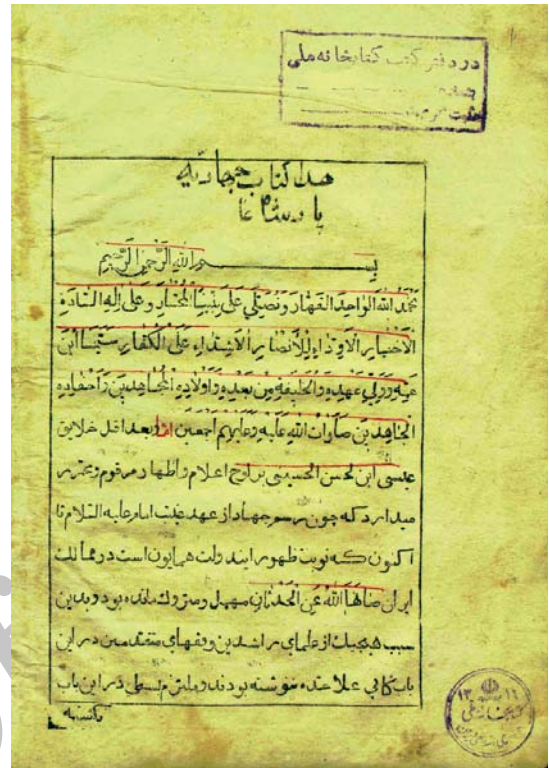 در دفتر کتب کتابخانه ملی
ثبت گردید
هذا کتاب جهادیه
بسم الله الرحمن الرحیم
نحمد الله الواحد القهار و نصلی علی نبینا المختار و علی اله السادة
الاخیار الاوداء للانصار الاشداء علی الکفار سیما ابن
عمه و ولی عهده و الخلیفه من بعده و اولاده المجاهدین و احفاده
الجاهدین صلوات الله علیه و علیهم اجمعین اما بعد اقل خلایق
عیسی ابن الحسن الحسینی بر لوح اعلام و اظهار مرقوم و محرر
میدارد که چون رسم جهاد از عهد غیبت امام علیه السلام تا
اکنون که نوبت ظهور این دولت همایون است در ممالک
ایران صانها الله عن الحدثان مهمل و متروک مانده بود و بدین
سبب هیچیک از علمای راشدین و فقهای متقدمین در این
باب کتابی علاحده ننوشته بودند و ملتزم بسطی در این باب